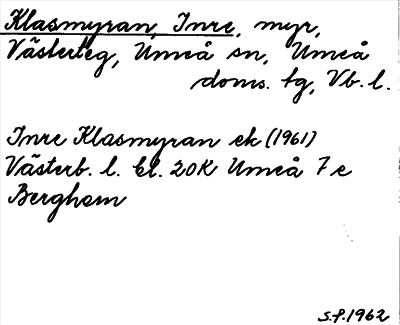 Klasmyran, Inre, myr,
Västerteg, Umeå sn, Umeå
doms. tg, Vb. l.
Inre Klasmyran ek (1961)
Västerb. l. bl. 20K Umeå 7e
Berghem
S.P. 1962